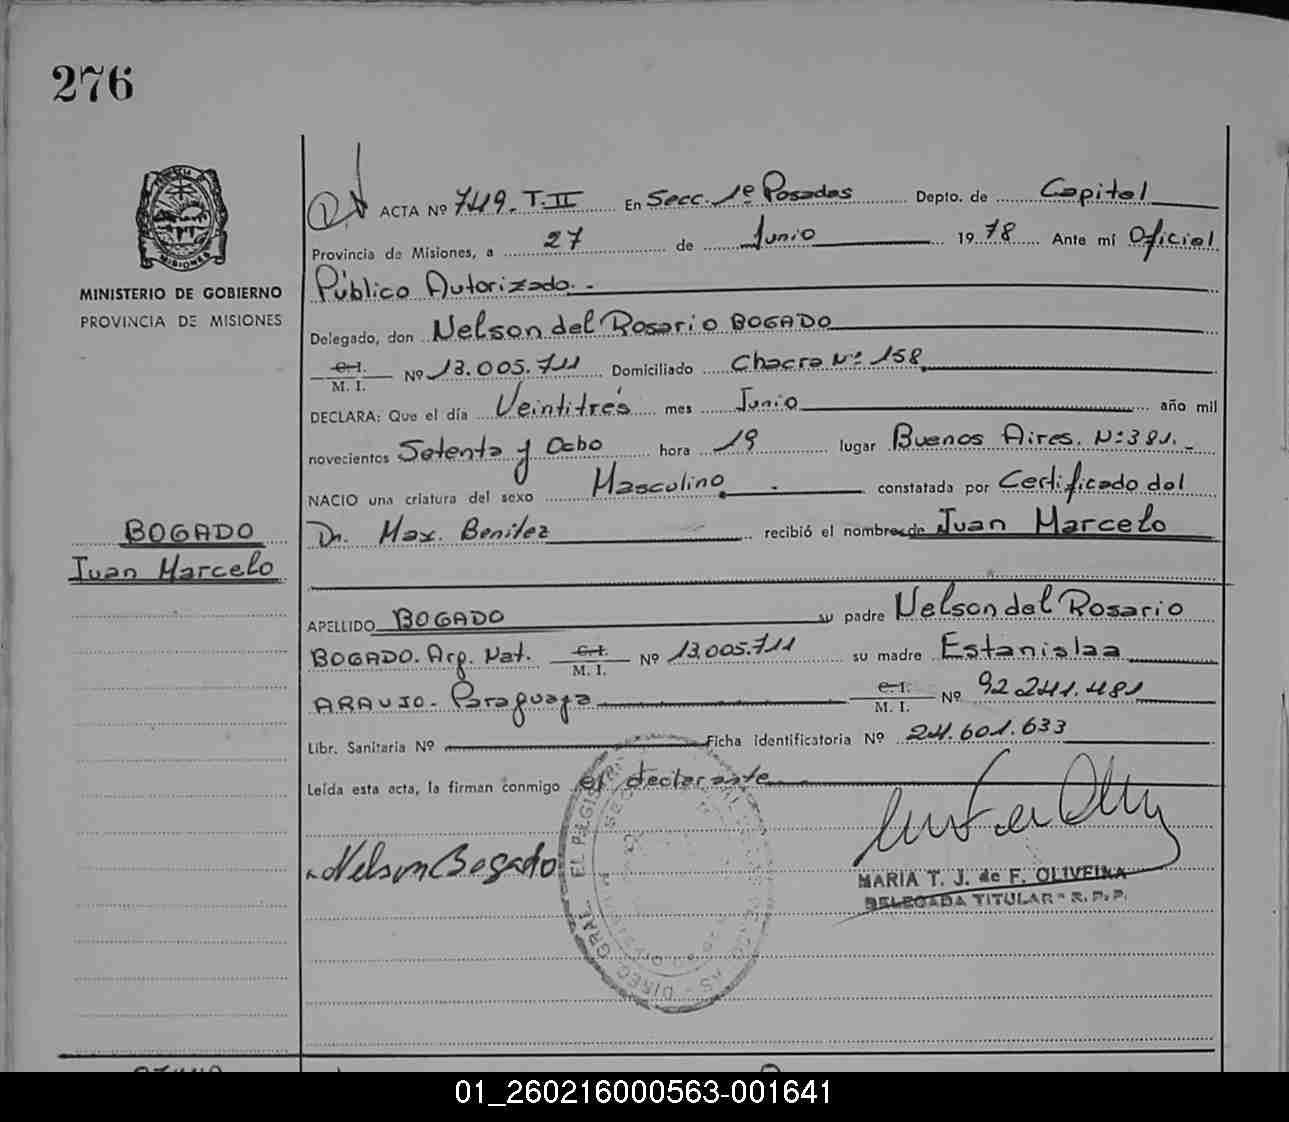 276
MISIONES
MINISTERIO DE GOBIERNO
PROVINCIA DE MISIONES
BOGADO
Juan Marcelo
ACTA Nº 749. T. II En Secc. 1º Posadas Depto. de Capital
Provincia de Misiones, a 27 de Junio 1978 Ante mí Oficial
Público Autorizado.-
Delegado, don Nelson del Rosario BOGADO
C. I.
M. I. Nº 13.005.711 Domiciliado Chacra Nº 158
DECLARA: Que el día Veintitrés mes Junio año mil
novecientos Setenta y Ocho hora 19 lugar Buenos Aires. Nº 381.-
NACIO una criatura del sexo Masculino. constatada por Certificado del
Dr. Max. Benitez recibió el nombre de Juan Marcelo
APELLIDO BOGADO su padre Nelson del Rosario
BOGADO. Arg. Nat. C. I. M. I. Nº 13.005.711 su madre Estanislaa
ARAUJO. Paraguaya C. I. M. I. Nº 92 241.481
Libr. Sanitaria Nº Ficha identificatoria Nº 24.601.633
Leída esta acta, la firman conmigo el declarante
Nelson Bogado
MARIA T. J. de F. OLIVEIRA
DELEGADA TITULAR - R. P. P.
01_260216000563-001641